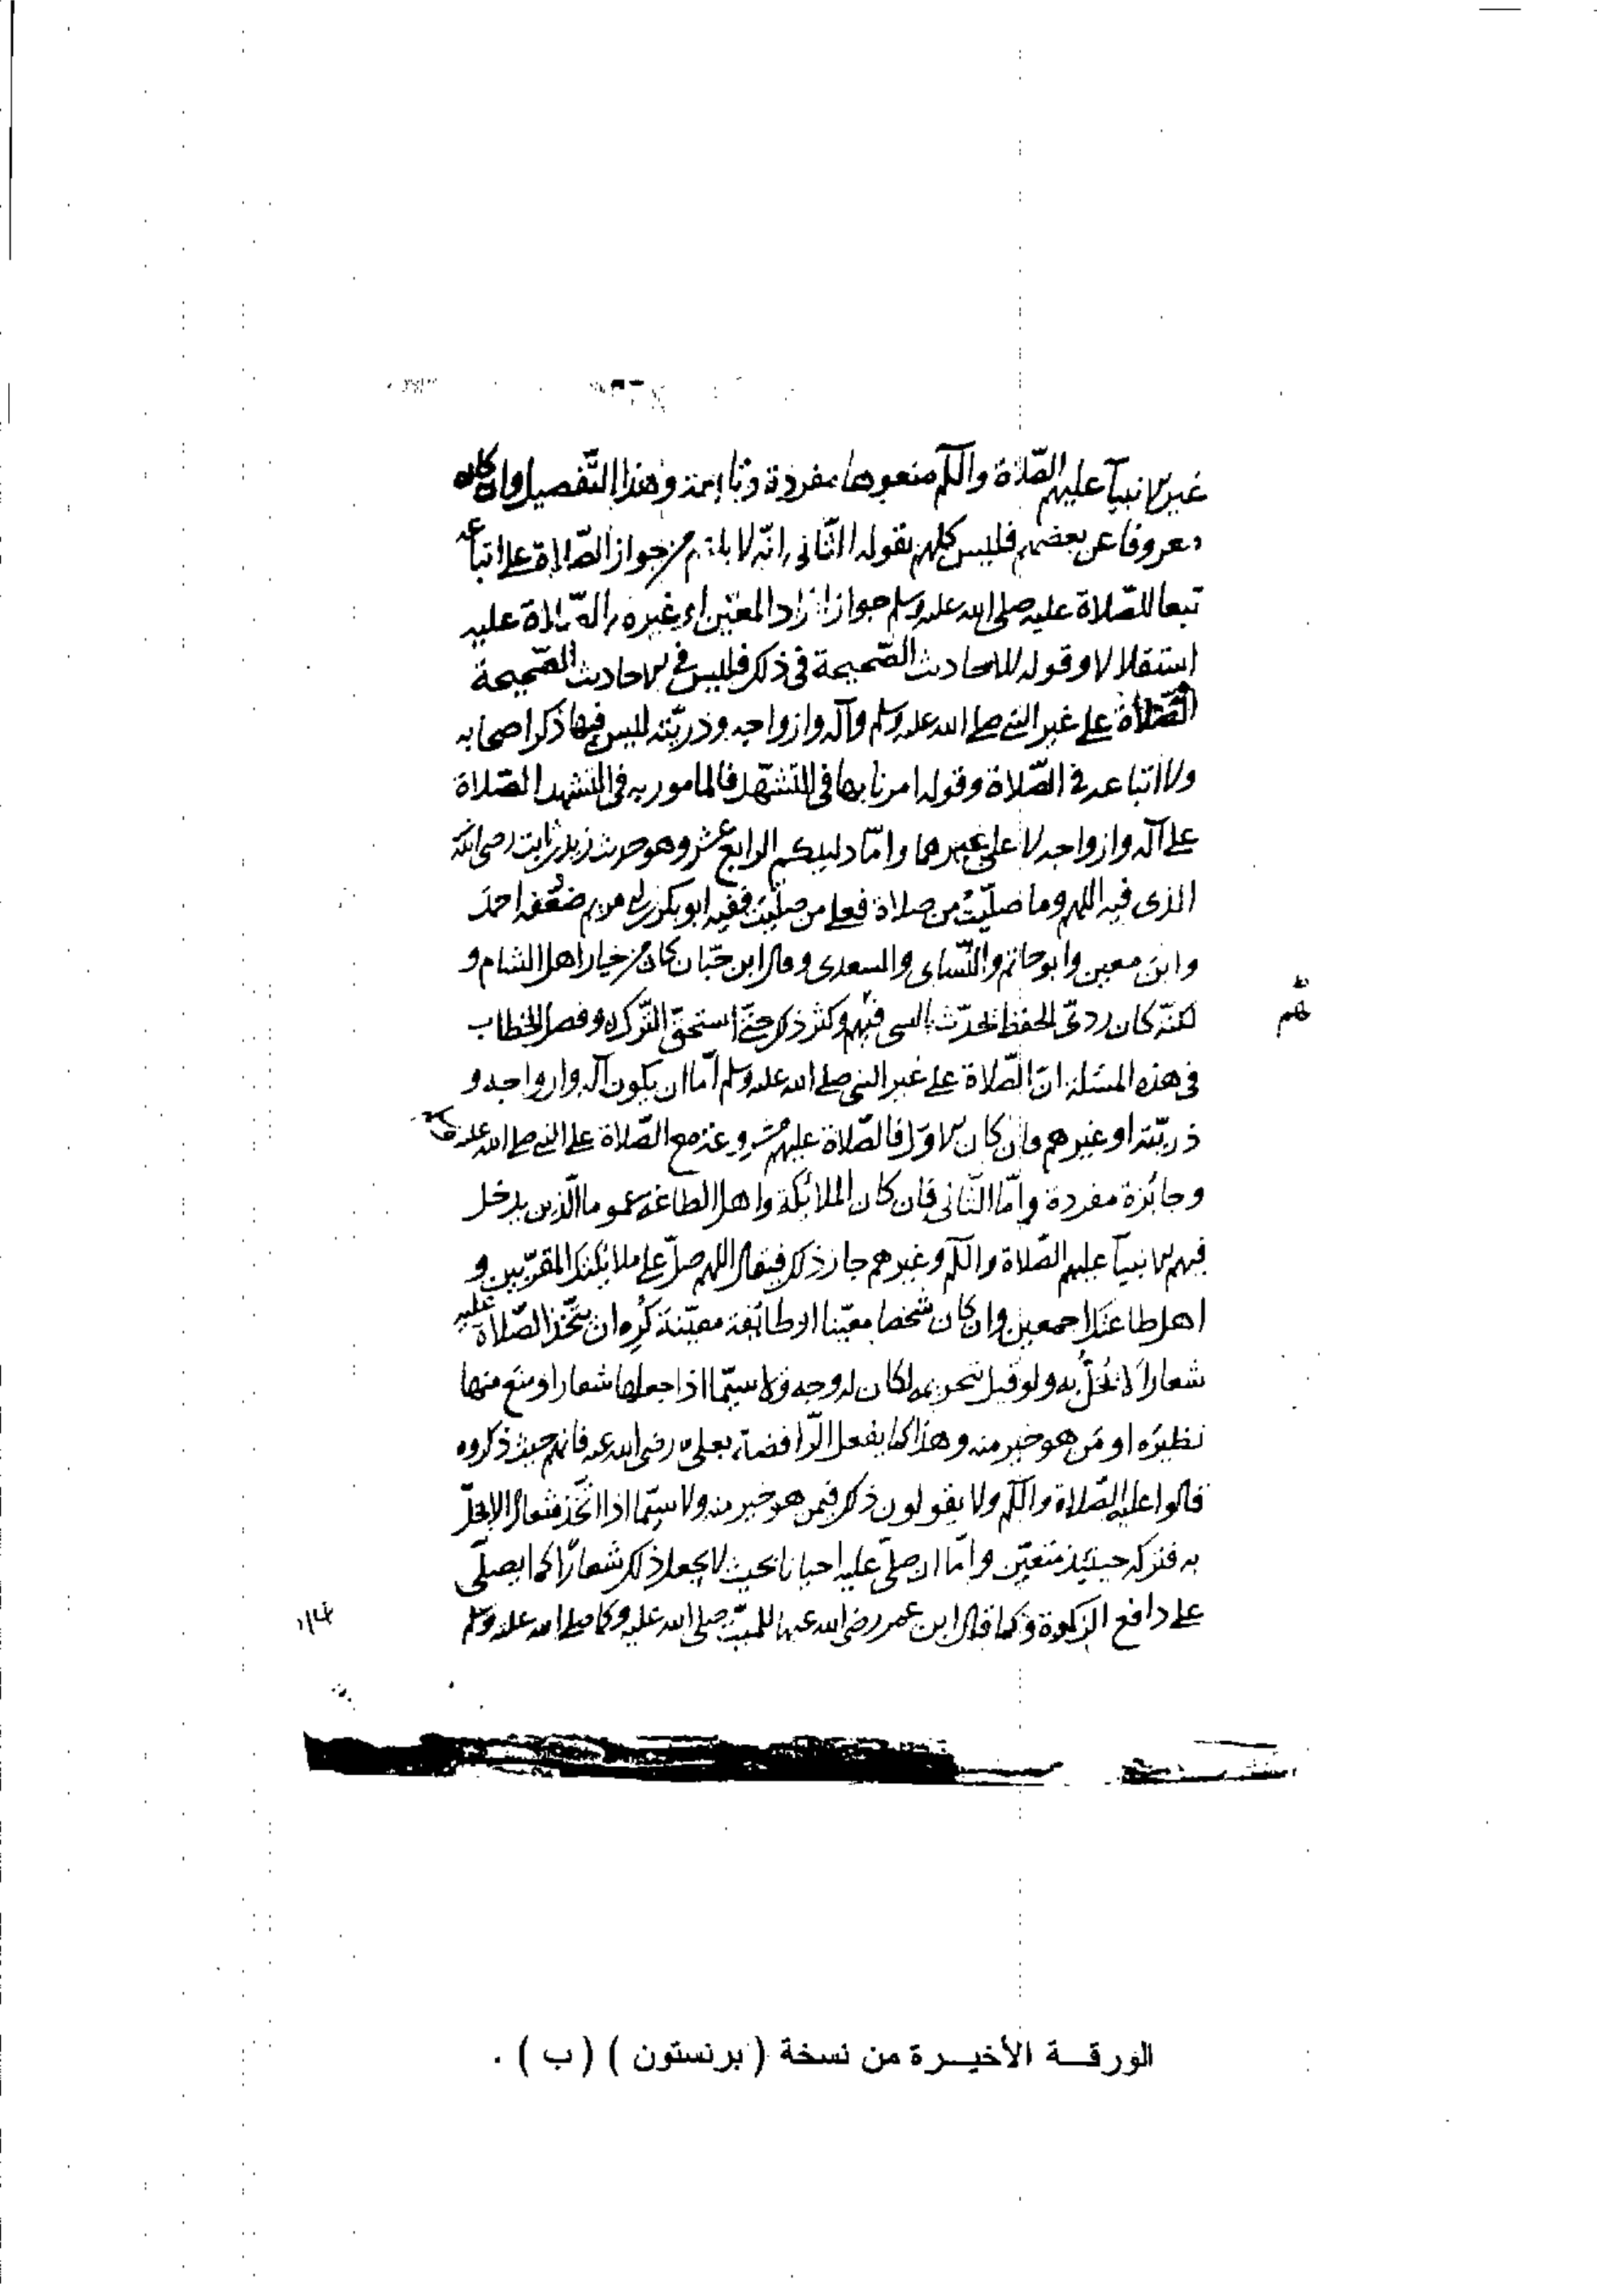 غير الانبيآ عليهم الصّلاة والسّلم منعوها مفردة وتابعة وهذا التّفصيل وان كان
معروفا عن بعضهم فليس كلهم يقوله الثّانى انّه لا يلزم من جواز الصّلاة على اتباعه
تبعا للصّلاة عليه صلى الله عليه وسلم جواز افراد المعيّن او غيره بالصّلاة عليه
استقلالا وقوله للاحاديث الصّحيحة فى ذلك فليس فى الاحاديث الصّحيحة
الصّلاة على غير النبي صلى الله عليه وسلم وآله وازواجه وذريّته ليس فيها ذكر اصحابه
ولا اتباعه فى الصّلاة وقوله امرنا بها فى التشهّد فالمامور به فى التشهد الصّلاة
على آله وازواجه لا على غيرهما وامّا دليلكم الرابع عشر وهو حديث زيد بن ثابت رضى الله عنه
الذى فيه اللهم وما صلّيتُ من صلاة فعلى من صلّيت ففيه ابو بكر بن ابى مريم ضعّفه احمد
وابن معين وابو حاتم والنّساى والسعدى وقال ابن حبّان كان من خيار اهل الشام و
لكنّه كان ردىّ الحفظ يحدّث بالشى فيهم وكثر ذلك حتّى استحقّ التّرك وفصل الخطاب
فى هذه المسئلة انّ الصّلاة على غير النبي صلى الله عليه وسلم امّا ان يكون آله وازواجه و
ذريّته او غيرهم فان كان الاوّل فالصّلاة عليهم مشروعة مع الصّلاة على النبي صلى الله عليه وسلم
وجائزة مفردة وامّا الثّانى فان كان الملائكة واهل الطاعة عموما الّذين يدخل
فيهم الانبيآ عليهم الصّلاة والسّلم وغيرهم جاز ذلك فيقال اللهم صلّ على ملائكتك المقرّبين و
اهل طاعتك اجمعين وان كان شخصا معيّنا او طائفة معيّنة كُرِه ان يتّخذ الصّلاة عليه
شعارًا لا يُخلّ به ولو قيل بتحريمه لكان له وجه ولا سيّما اذا جعلها شعارا ومنع منها
نظيرَه او مَن هو خير منه وهذا كما يفعل الرّافضة بعلى رضى الله عنه فانهم حيث ذكروه
قالوا عليه الصّلاة والسّلم ولا يقولون ذلك فيمن هو خير منه ولا سيّما اذا اتّخذ شعارًا لا يخلّ
به فتركه حينئذ متعيّن وامّا ان صلّى عليه احيانا بحيث لا يجعل ذلك شعارًا كما يصلّى
على دافع الزكوة وكما قال ابن عمر رضى الله عنهما للميّت صلى الله عليه وكما صلى الله عليه وسلم
الورقة الأخيرة من نسخة ( برنستون ) ( ب ) .